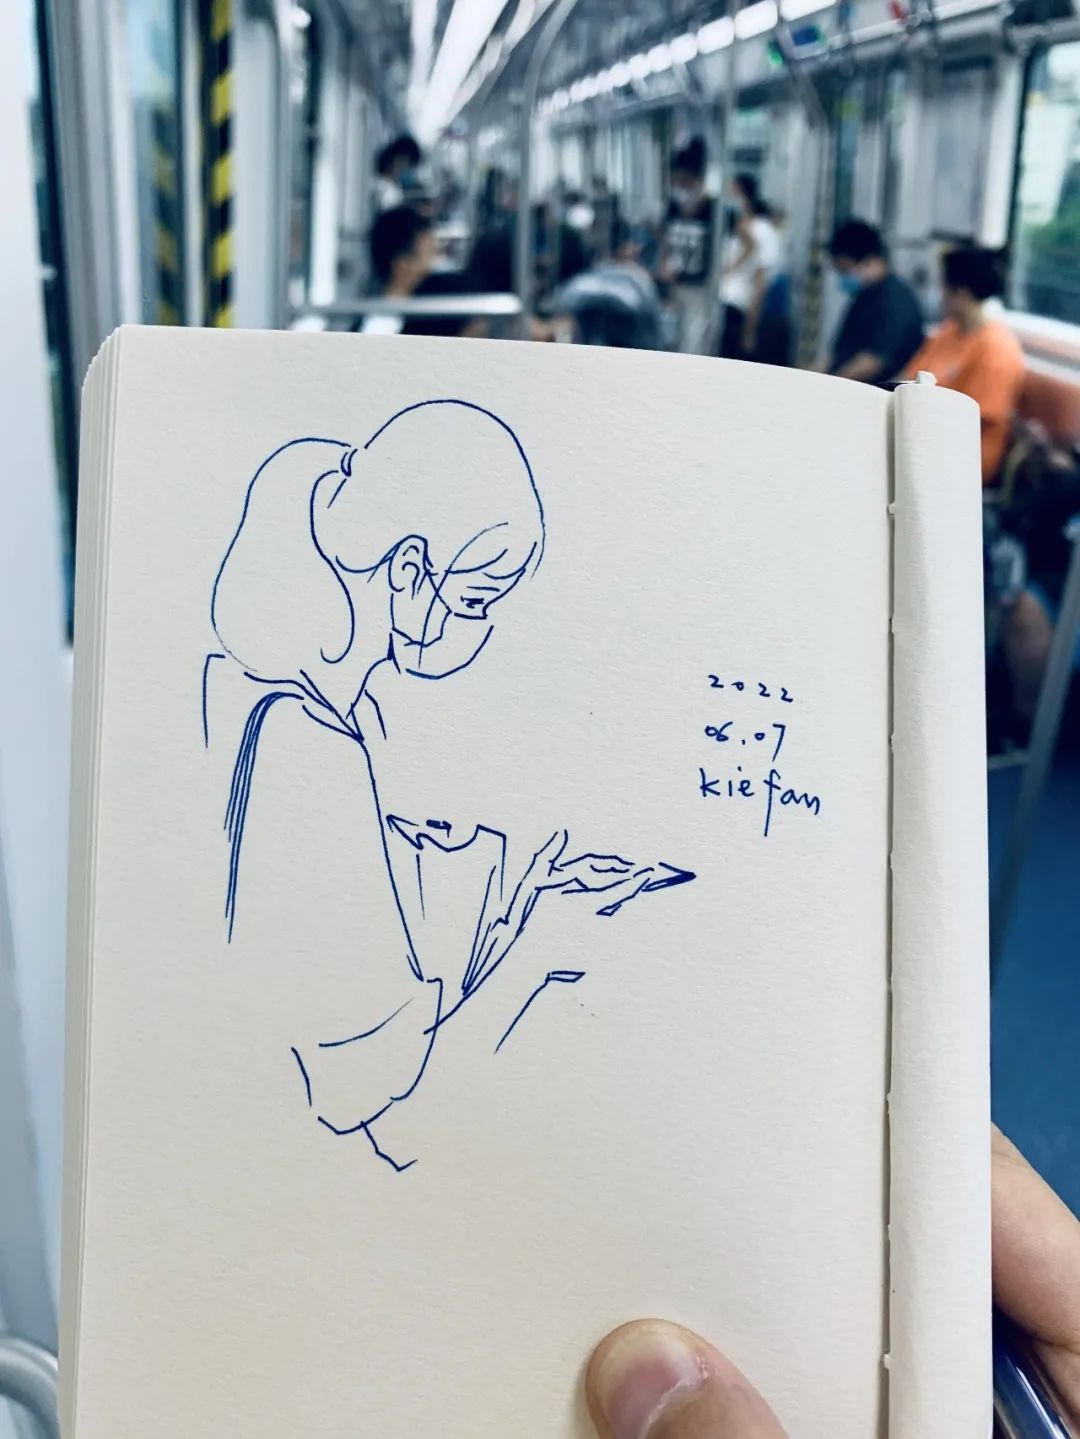 2022
06.07
kiefan